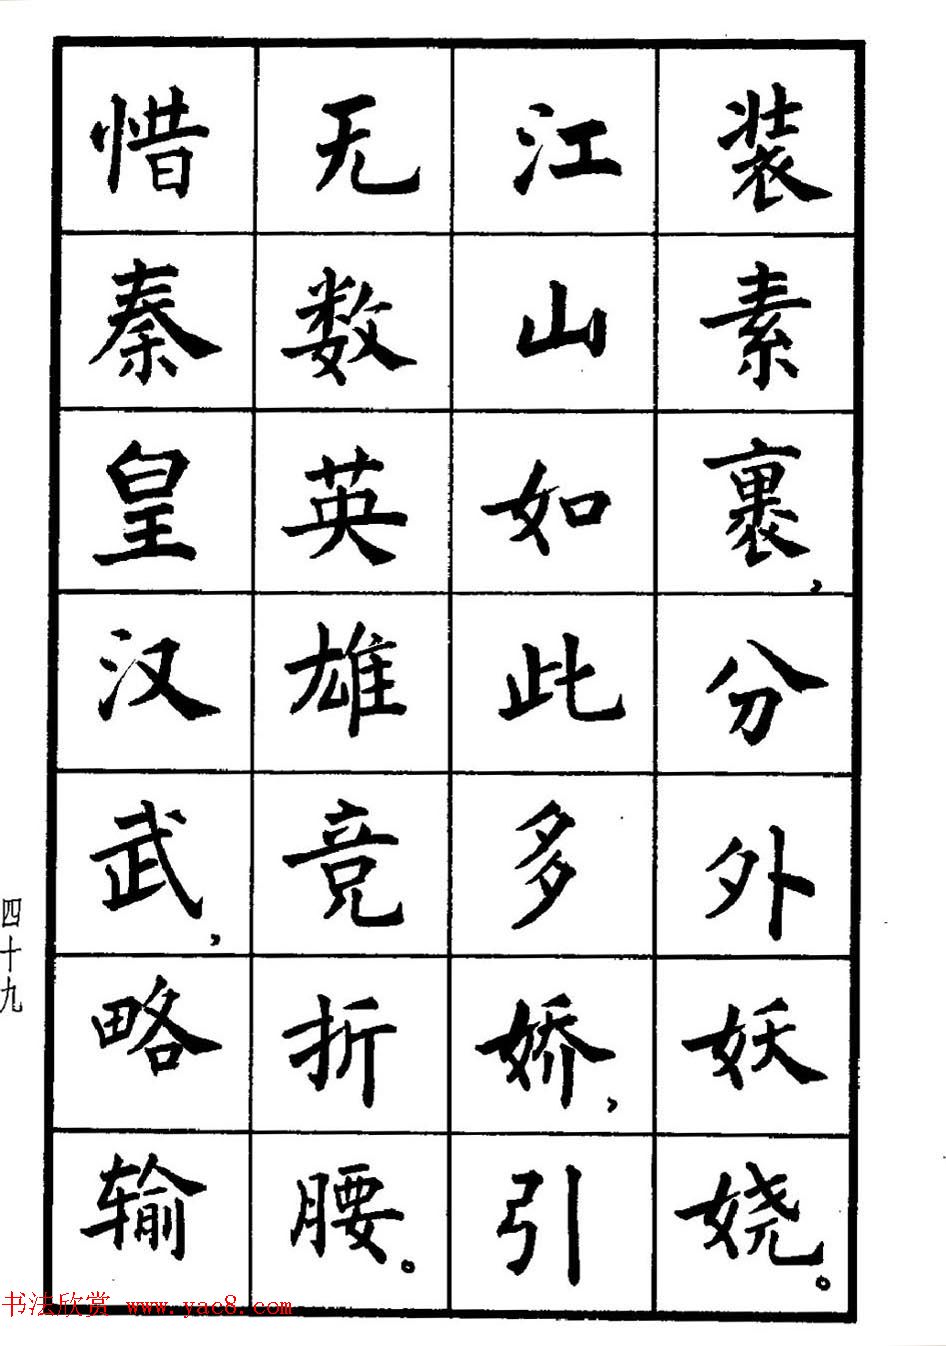 装素裹，分外妖娆。
江山如此多娇，引
无数英雄竞折腰。
惜秦皇汉武，略输
四十九
书法欣赏 www.yac8.com